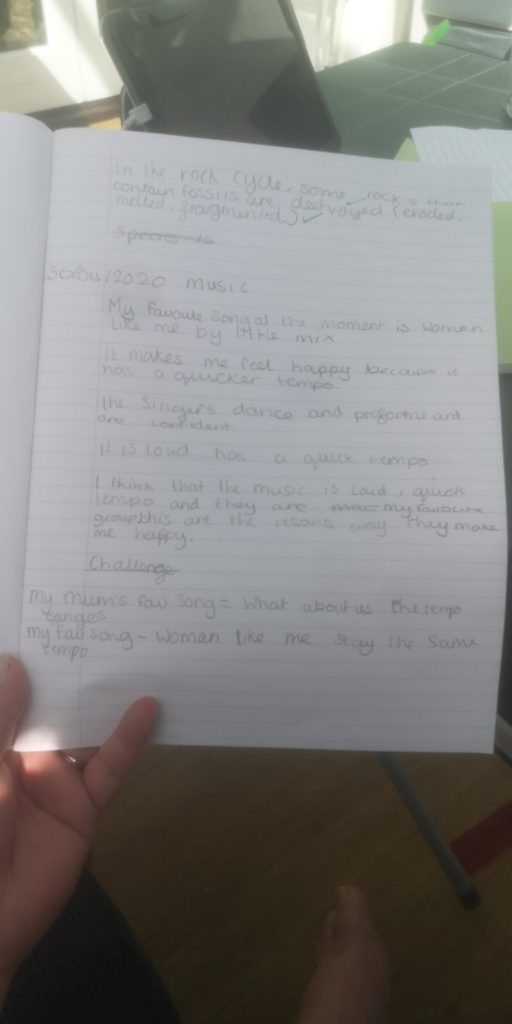 In the rock cycle, some rocks that
contain fossils are destroyed (eroded,
melted, fragmented)
Species is
30/04/2020 music
My favoute song at the moment is Woman
Like me by little mix
it makes me feel happy because it
has a quicker tempo.
the singers dance and and
are confident.
it is loud has a quick tempo
I think that the music is loud, quick
tempo and they are my favoute
group this are the resons way they make
me happy.
Challenge
my mum's fav song = What about us the tempo
ranges
my fav song - Woman like me stay the same
tempo